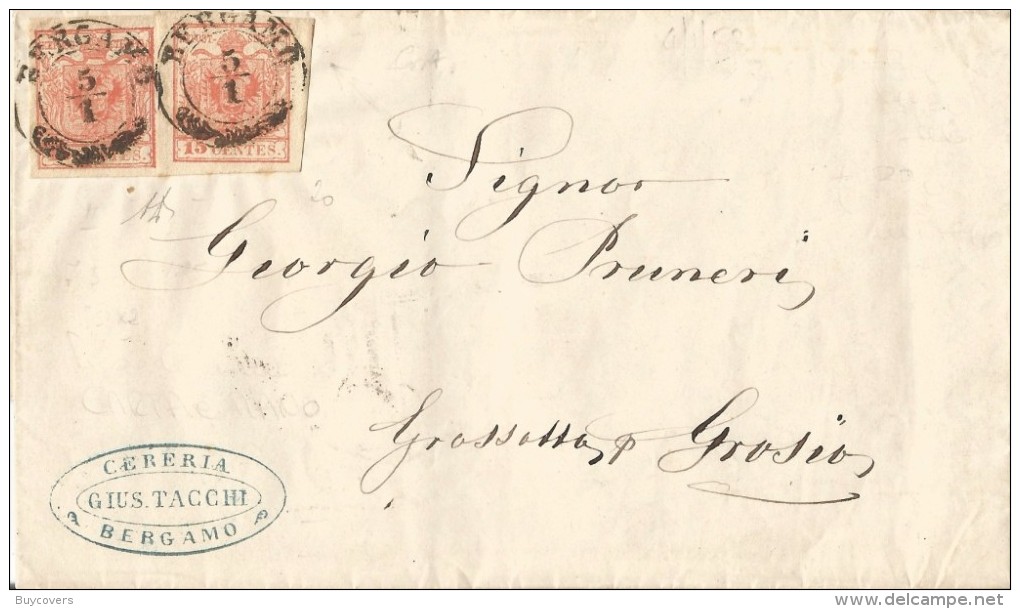 BERGAMO
5/1
BERGAMO
5/1
CENTES.
15 CENTES.
Signor
Giorgio Pruneri
Grossotto p Grosio
CÆRERIA
GIUS. TACCHI
BERGAMO
Buycovers
delcampe.net